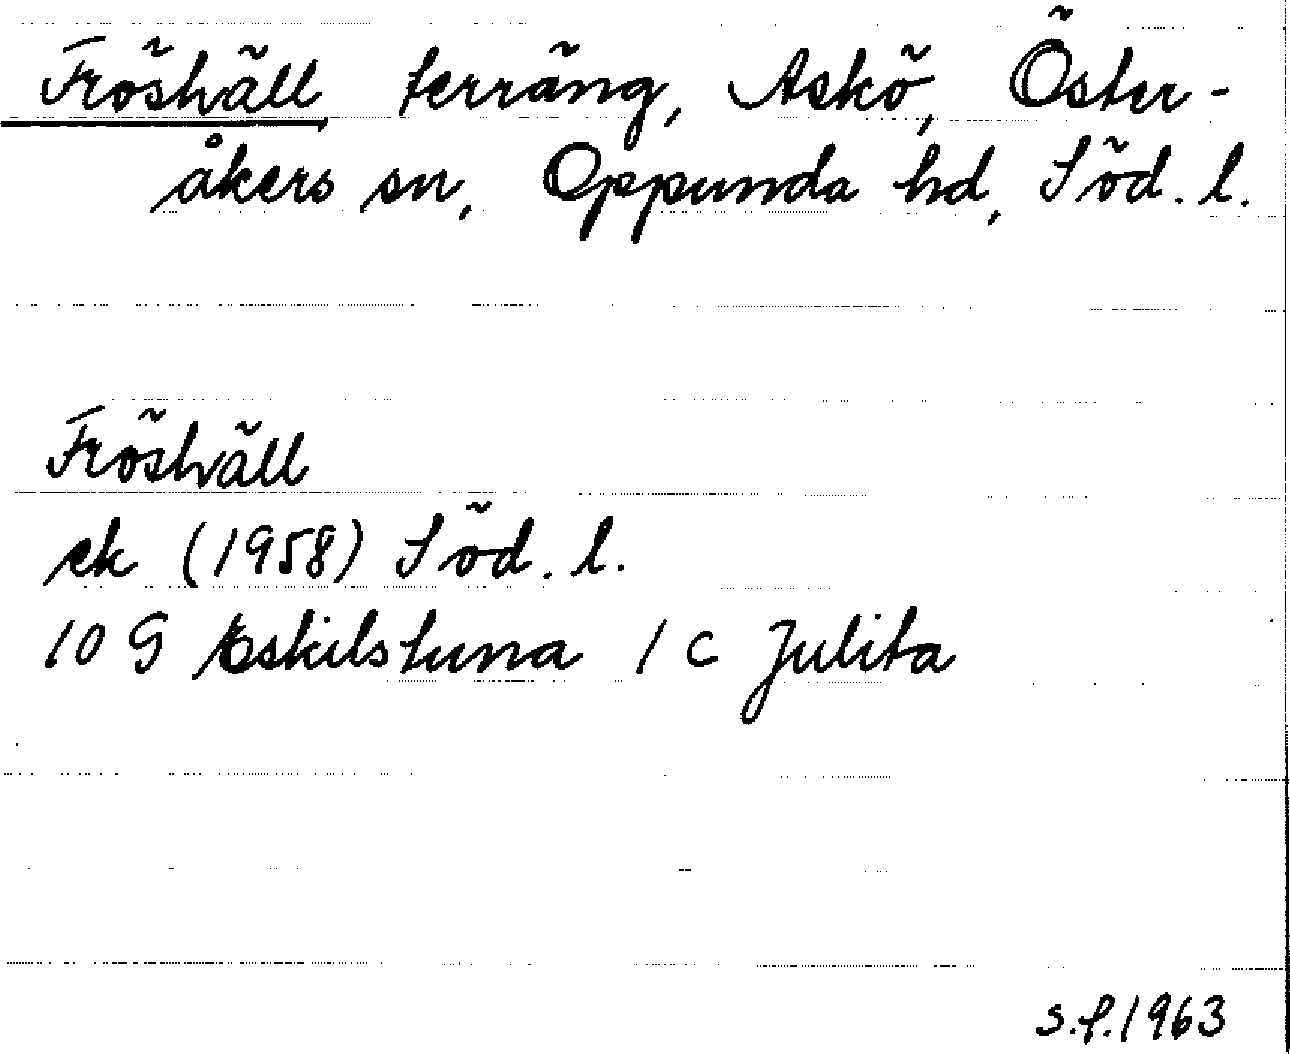 Fröshäll terräng, Askö, Öster-
åkers sn, Oppunda hd, Söd. l.
Fröshäll
ek (1958) Söd. l.
10 G Eskilstuna 1 c Julita
S.P. 1963